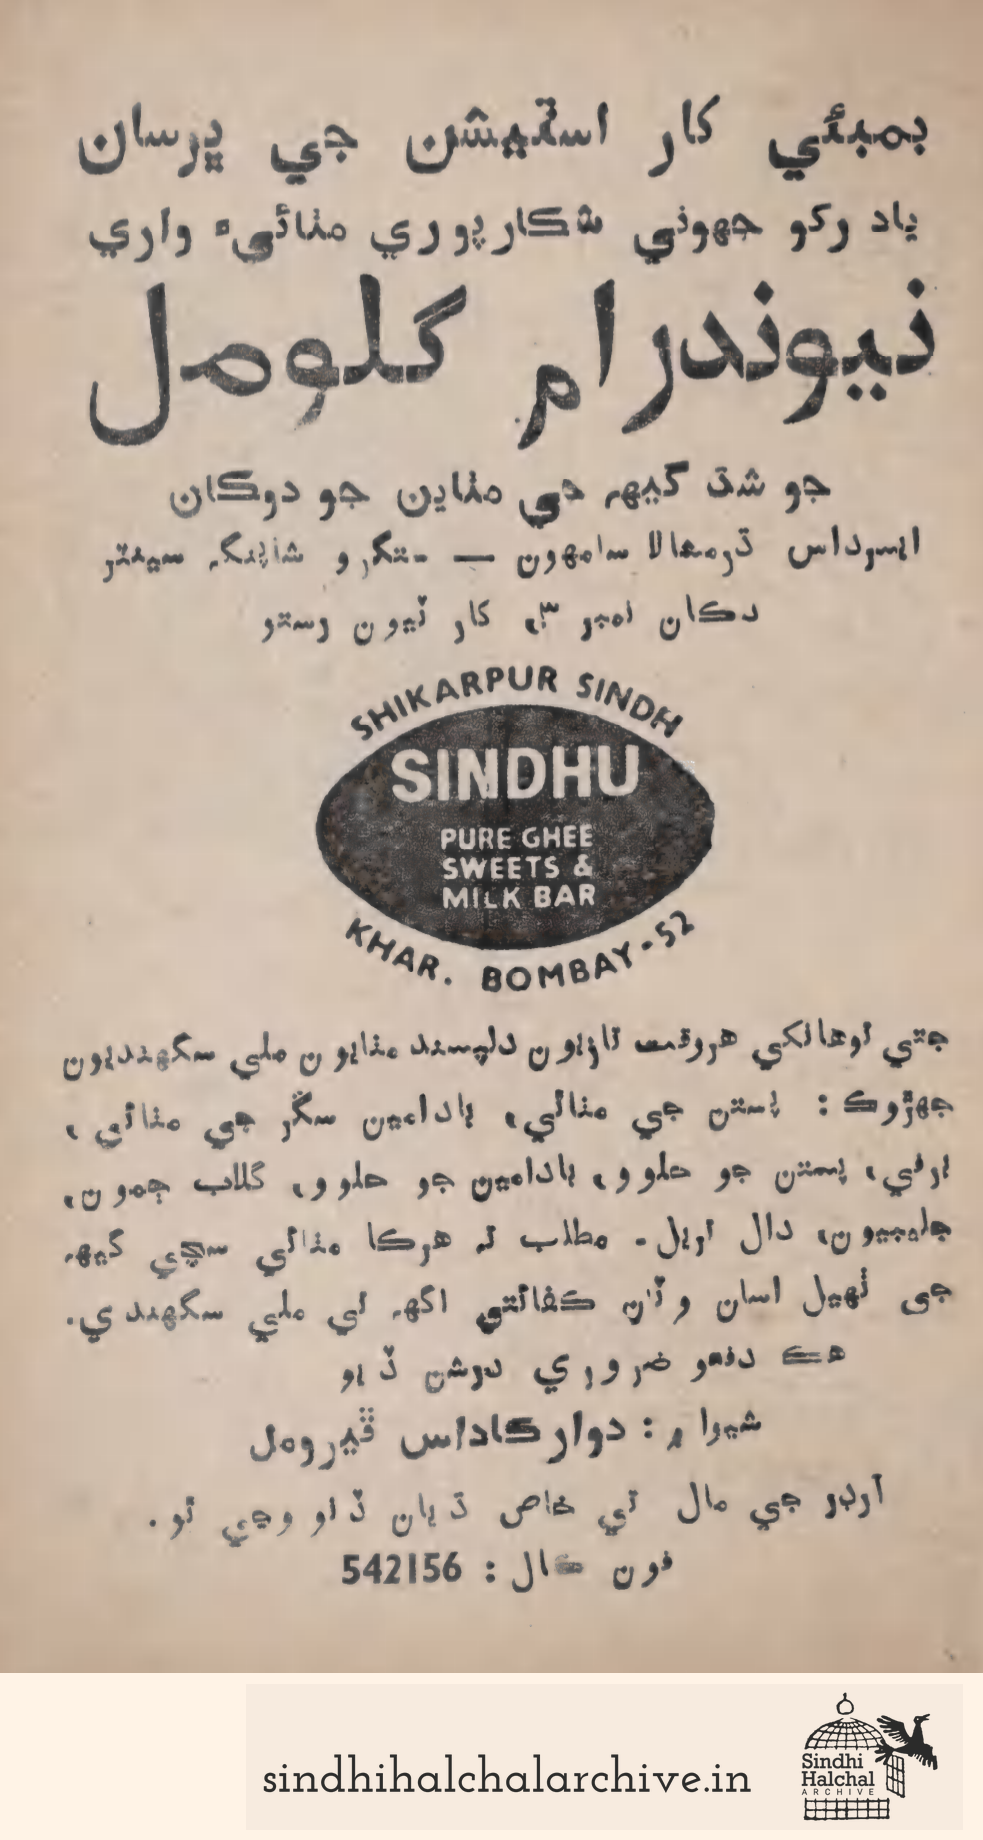 بمبئي کار اسٽيشن جي ڀرسان
ياد رکو جهوني شڪارپوري مٺائيءَ واري
نيوندرام گلومل
جو شڌ گيهہ جي مٺاين جو دوڪان
ايسرداس ڌرمشالا سامهون — شاپنگ سينٽر
دڪان نمبر ٣، کار نيون رستو
SHIKARPUR SINDH
SINDHU
PURE GHEE
SWEETS &
MILK BAR
KHAR. BOMBAY-52
جتي اوهانکي هروقت تازيون دلپسند مٺايون ملي سگهنديون
جهڙوڪ: پستن جي مٺائي، بادامين سڱر جي مٺائي،
برفي، پستن جو حلوو، بادامين جو حلوو، گلاب ڄمون،
جليبيون، دال آريل. مطلب تہ هرڪا مٺائي سچي گيهہ
جي ٺهيل اسان وٽان ڪفائتي اگهہ تي ملي سگهندي.
هڪ دفعو ضروري درشن ڏيو
شيوا ۾: دوارڪاداس ڦيرومل
آرڊر جي مال تي خاص ڌيان ڏنو وڃي ٿو.
فون ڪال: 542156
sindhihalchalarchive.in
Sindhi
Halchal
ARCHIVE